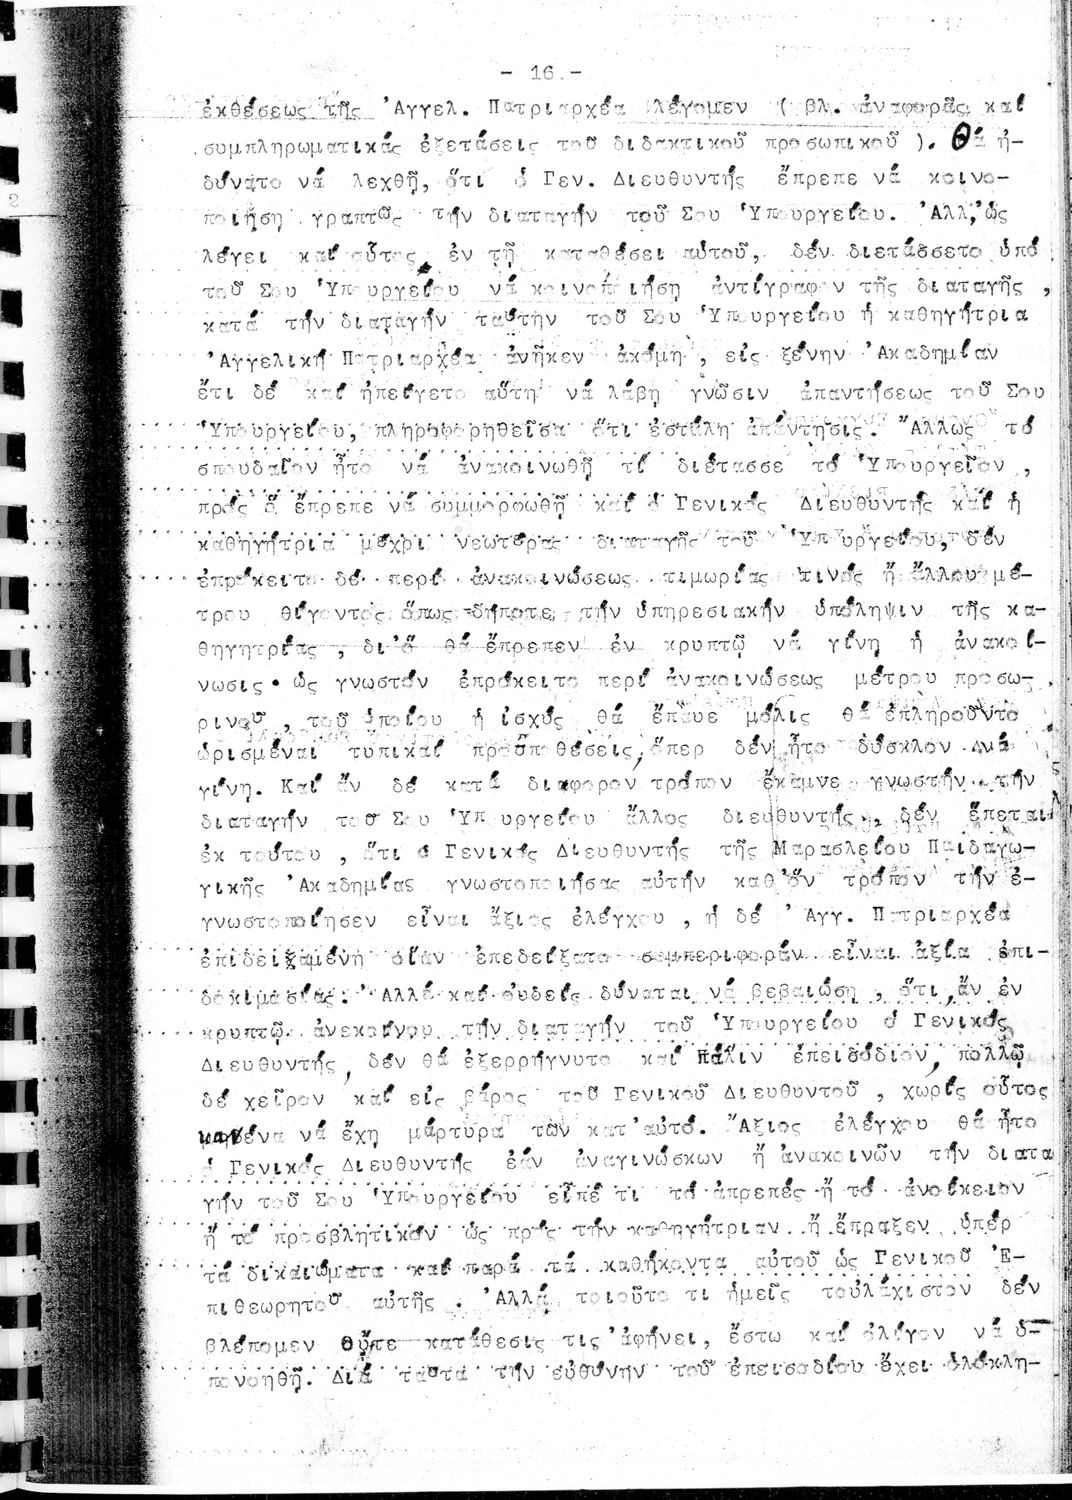 - 16 -
ἐκθέσεως τῆς Ἀγγελ. Πατριαρχέα λέγομεν ( βλ. ἀναφοράς καί
συμπληρωματικάς ἐξετάσεις τοῦ διδακτικοῦ προσωπικοῦ ). Θά ἠ-
δύνατο νά λεχθῇ, ὅτι ὁ Γεν. Διευθυντής ἔπρεπε νά κοινο-
ποιήσῃ γραπτῶς τήν διαταγήν τοῦ Σου Ὑπουργείου. Ἀλλ,' ὡς
λέγει καί οὗτος, ἐν τῇ καταθέσει αὐτοῦ, δέν διετάσσετο ὑπό
τοῦ Σου Ὑπουργείου νά κοινοποιήσῃ ἀντίγραφον τῆς διαταγῆς ,
κατά τήν διαταγήν ταύτην τοῦ Σου Ὑπουργείου ἡ καθηγήτρια
Ἀγγελική Πατριαρχέα ἀνῆκεν ἀκόμη , εἰς ξένην Ἀκαδημίαν
ἔτι δέ καί ἠπείγετο αὕτη νά λάβῃ γνῶσιν ἀπαντήσεως τοῦ Σου
Ὑπουργείου, πληροφορηθεῖσα ὅτι ἐστάλη ἀπάντησις. Ἄλλως τό
σπουδαῖον ἦτο νά ἀνακοινωθῇ τί διέτασσε τό Ὑπουργεῖον ,
πρός ἅ ἔπρεπε νά συμμορφωθῇ καί ὁ Γενικός Διευθυντής καί ἡ
καθηγήτρια μέχρι νεωτέρας διαταγῆς τοῦ Ὑπουργείου, δέν
ἐπρόκειτο δέ περί ἀνακοινώσεως τιμωρίας τινός ἤ ἄλλου μέ-
τρου θίγοντος ὅπως δήποτε τήν ὑπηρεσιακήν ὑπόληψιν τῆς κα-
θηγητρίας , δι' ὅ θά ἔπρεπεν ἐν κρυπτῷ νά γίνῃ ἡ ἀνακοί-
νωσις· ὡς γνωστόν ἐπρόκειτο περί ἀνακοινώσεως μέτρου προσω-
ρινοῦ , τοῦ ὁποίου ἡ ἰσχύς θά ἔπαυε μόλις θά ἐπληροῦντο
ὡρισμέναι τυπικαί προϋποθέσεις, ὅπερ δέν ἦτο δύσκολον νά
γίνῃ. Καί ἄν δέ κατά διάφορον τρόπον ἔκαμνε γνωστήν τήν
διαταγήν τοῦ Σου Ὑπουργείου ἄλλος διευθυντής, δέν ἕπεται
ἐκ τούτου , ὅτι ὁ Γενικός Διευθυντής τῆς Μαρασλείου Παιδαγω-
γικῆς Ἀκαδημίας γνωστοποιήσας αὐτήν καθ' ὅν τρόπον τήν ἐ-
γνωστοποίησεν εἶναι ἄξιος ἐλέγχου , ἡ δέ Ἀγγ. Πατριαρχέα
ἐπιδειξαμένη οἵαν ἐπεδείξατο συμπεριφοράν εἶναι ἀξία ἐπι-
δοκιμασίας. Ἀλλά καί οὐδείς δύναται νά βεβαιώσῃ , ὅτι, ἄν ἐν
κρυπτῷ ἀνεκοίνου τήν διαταγήν τοῦ Ὑπουργείου ὁ Γενικός
Διευθυντής, δέν θά ἐξερρήγνυτο καί πάλιν ἐπεισόδιον, πολλῷ
δέ χεῖρον καί εἰς βάρος τοῦ Γενικοῦ Διευθυντοῦ , χωρίς οὗτος
μηδένα νά ἔχῃ μάρτυρα τῶν κατ' αὐτό. Ἄξιος ἐλέγχου θά ἦτο
ὁ Γενικός Διευθυντής ἐάν ἀναγινώσκων ἤ ἀνακοινῶν τήν διατα
γήν τοῦ Σου Ὑπουργείου εἶπέ τι τό ἀπρεπές ἤ τό ἀνοίκειον
ἤ τό προσβλητικόν ὡς πρός τήν καθηγήτριαν ἤ ἔπραξεν ὑπέρ
τά δικαιώματα καί παρά τά καθήκοντα αὐτοῦ ὡς Γενικοῦ Ἐ-
πιθεωρητοῦ αὐτῆς . Ἀλλά τοιοῦτο τι ἡμεῖς τοὐλάχιστον δέν
βλέπομεν οὔτε κατάθεσις τις ἀφήνει, ἔστω καί ὀλίγον νά ὑ-
πονοηθῇ. Διά ταῦτα τήν εὐθύνην τοῦ ἐπεισοδίου ἔχει ὁλόκλη-